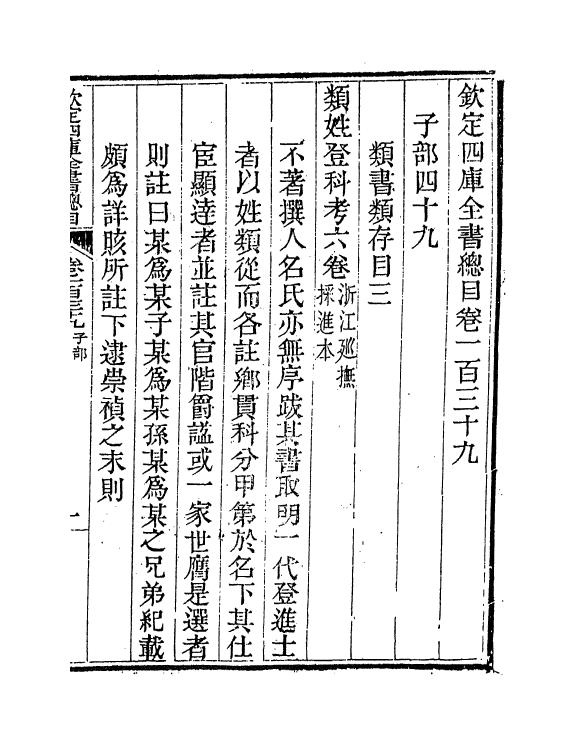 欽定四庫全書總目卷一百三十九
子部四十九
類書類存目三
類姓登科考六卷浙江廵撫採進本
不著撰人名氏亦無序跋其書取明一代登進士
者以姓類從而各註鄉貫科分甲第於名下其仕
宦顯達者並註其官階爵謚或一家世膺是選者
則註曰某爲某子某爲某孫某爲某之兄弟紀載
頗爲詳賅所註下逮崇禎之末則
欽定四庫全書總目 卷一百三十九 子部 一